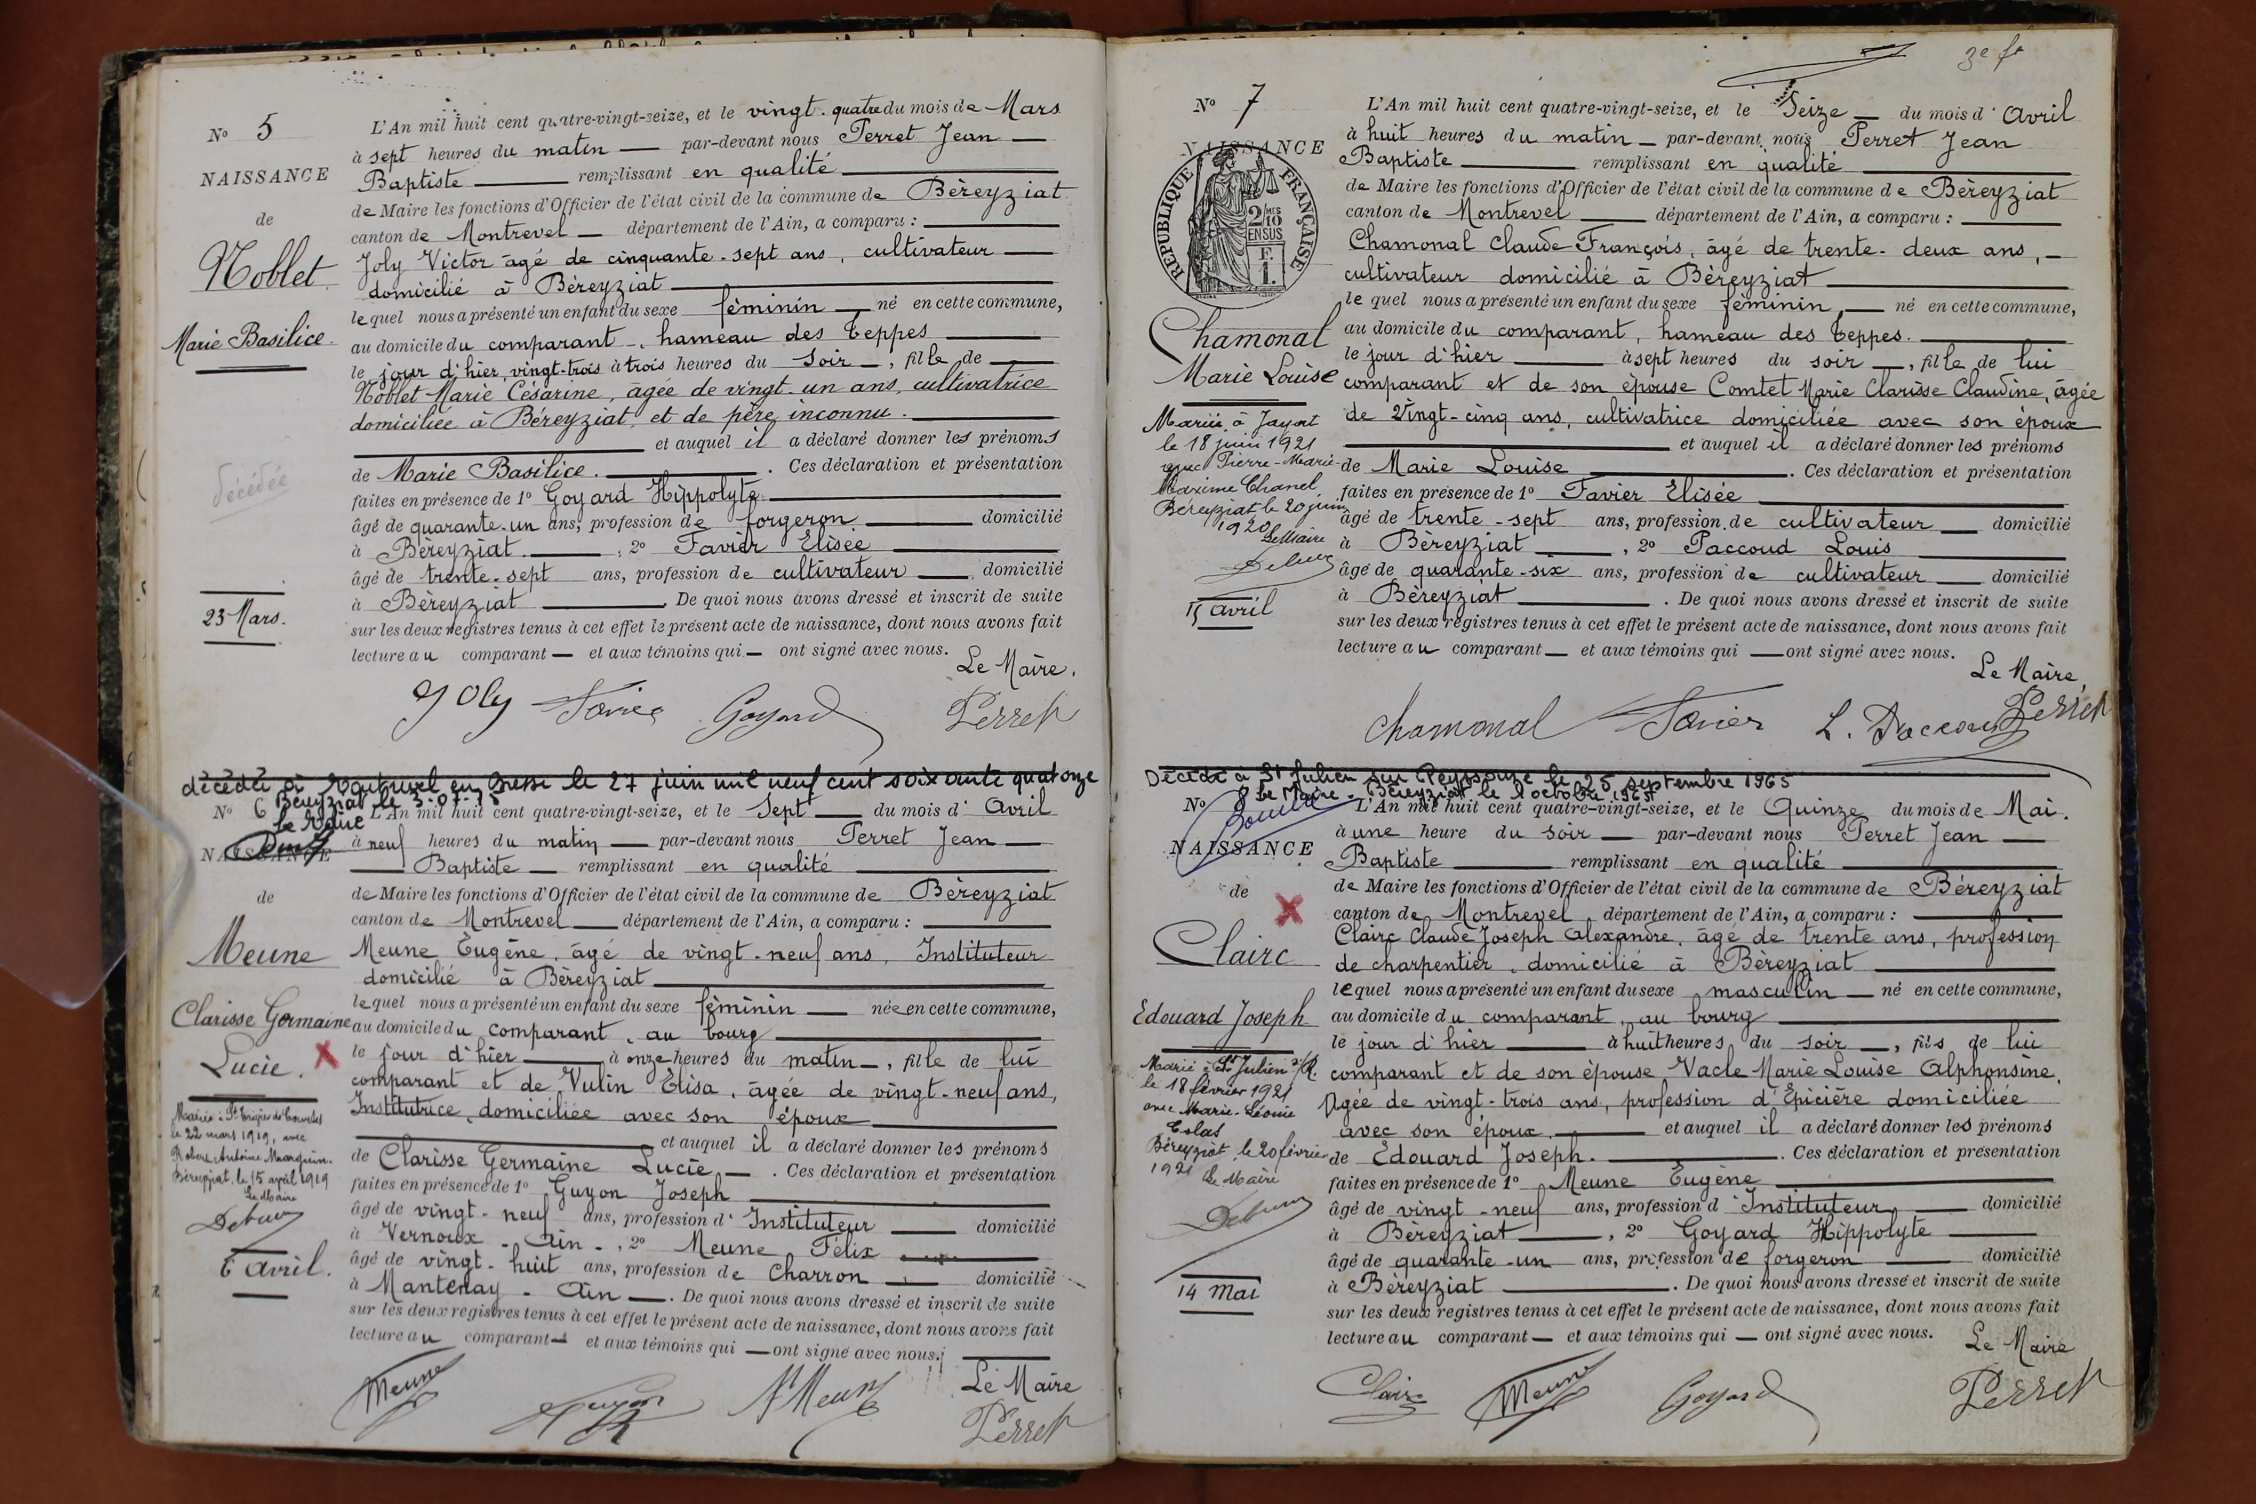 N° 5
NAISSANCE
de
Noblet
Marie Basilice.
décédée
23 Mars.
L'An mil huit cent quatre-vingt-seize, et le vingt-quatre du mois de Mars
à sept heures du matin — par-devant nous Perret Jean —
Baptiste — remplissant en qualité —
de Maire les fonctions d'Officier de l'état civil de la commune de Béreyziat
canton de Montrevel — département de l'Ain, a comparu : —
Joly Victor âgé de cinquante-sept ans, cultivateur —
domicilié à Béreyziat —
lequel nous a présenté un enfant du sexe féminin — né en cette commune,
au domicile du comparant, hameau des Teppes —
le jour d'hier, vingt-trois à trois heures du soir —, fille de —
Noblet Marie Césarine, âgée de vingt-un ans, cultivatrice
domiciliée à Béreyziat, et de père inconnu. —
— et auquel il a déclaré donner les prénoms
de Marie Basilice. — . Ces déclaration et présentation
faites en présence de 1° Goyard Hippolyte —
âgé de quarante-un ans, profession de forgeron — domicilié
à Béreyziat. —, 2° Favier Elisée —
âgé de trente-sept ans, profession de cultivateur — domicilié
à Béreyziat —. De quoi nous avons dressé et inscrit de suite
sur les deux registres tenus à cet effet le présent acte de naissance, dont nous avons fait
lecture au comparant — et aux témoins qui — ont signé avec nous.
Le Maire.
Joly Favier Goyard Perret
décédée à Montrevel en Bresse le 27 juin mil neuf cent soixante quatorze
Béreyziat le 3-07-
Le Maire
N° 6
NAISSANCE
de
Meune
Clarisse Germaine
Lucie.
Mariée à St Trivier de Courtes
le 22 mars 1919, avec
Robert Antoine
Béreyziat, le 15 avril 1919
Le Maire
6 avril.
L'An mil huit cent quatre-vingt-seize, et le Sept — du mois d'Avril
à neuf heures du matin — par-devant nous Perret Jean —
— Baptiste — remplissant en qualité —
de Maire les fonctions d'Officier de l'état civil de la commune de Béreyziat
canton de Montrevel — département de l'Ain, a comparu : —
Meune Eugène, âgé de vingt-neuf ans, Instituteur
domicilié à Béreyziat —
lequel nous a présenté un enfant du sexe féminin — née en cette commune,
au domicile du comparant, au bourg —
le jour d'hier — à onze heures du matin —, fille de lui
comparant et de Vulin Elisa, âgée de vingt-neuf ans,
Institutrice, domiciliée avec son époux —
— et auquel il a déclaré donner les prénoms
de Clarisse Germaine Lucie — . Ces déclaration et présentation
faites en présence de 1° Guyon Joseph —
âgé de vingt-neuf ans, profession d'Instituteur — domicilié
à Vernoux - Ain -, 2° Meune Félix —
âgé de vingt-huit ans, profession de charron — domicilié
à Mantenay - Ain —. De quoi nous avons dressé et inscrit de suite
sur les deux registres tenus à cet effet le présent acte de naissance, dont nous avons fait
lecture au comparant — et aux témoins qui — ont signé avec nous.
Le Maire
Meune Guyon Meune Perret
3e ft
N° 7
NAISSANCE
RÉPUBLIQUE FRANÇAISE
2/10 MES
EN SUS
F.
1.
Chamonal
Marie Louise
Mariée à Jayat
le 18 juin 1921
avec Pierre-Marie-
Maxime Chanel
Béreyziat le 20 juin
1920
Le Maire
15 avril
L'An mil huit cent quatre-vingt-seize, et le Seize — du mois d'Avril
à huit heures du matin — par-devant nous Perret Jean
Baptiste — remplissant en qualité —
de Maire les fonctions d'Officier de l'état civil de la commune de Béreyziat
canton de Montrevel — département de l'Ain, a comparu : —
Chamonal Claude François, âgé de trente-deux ans, —
cultivateur domicilié à Béreyziat —
lequel nous a présenté un enfant du sexe féminin, — né en cette commune,
au domicile du comparant, hameau des Teppes. —
le jour d'hier — à sept heures du soir —, fille de lui
comparant et de son épouse Comtet Marie Clarisse Claudine, âgée
de vingt-cinq ans, cultivatrice domiciliée avec son époux
— et auquel il a déclaré donner les prénoms
de Marie Louise — . Ces déclaration et présentation
faites en présence de 1° Favier Elisée —
âgé de trente-sept ans, profession de cultivateur — domicilié
à Béreyziat —, 2° Paccoud Louis —
âgé de quarante-six ans, profession de cultivateur — domicilié
à Béreyziat —. De quoi nous avons dressé et inscrit de suite
sur les deux registres tenus à cet effet le présent acte de naissance, dont nous avons fait
lecture au comparant — et aux témoins qui — ont signé avec nous.
Le Maire,
Chamonal Favier L. Paccoud Perret
Décédé à St Julien sur Reyssouze le 25 septembre 1965
Le Maire - Béreyziat le 1 octobre 1965
N° 8
NAISSANCE
de
Claire
Edouard Joseph
Marié à St Julien s/R.
le 18 février 1921
avec Marie-Léonie
Colas
Béreyziat, le 20 février
1921 Le Maire
14 Mai
L'An mil huit cent quatre-vingt-seize, et le Quinze du mois de Mai.
à une heure du soir — par-devant nous Perret Jean —
Baptiste — remplissant en qualité —
de Maire les fonctions d'Officier de l'état civil de la commune de Béreyziat
canton de Montrevel — département de l'Ain, a comparu : —
Claire Claude Joseph Alexandre, âgé de trente ans, profession
de charpentier, domicilié à Béreyziat —
lequel nous a présenté un enfant du sexe masculin — né en cette commune,
au domicile du comparant, au bourg —
le jour d'hier — à huit heures du soir —, fils de lui
comparant et de son épouse Vacle Marie Louise Alphonsine,
Agée de vingt-trois ans, profession d'Epicière domiciliée
avec son époux. — et auquel il a déclaré donner les prénoms
de Edouard Joseph. — . Ces déclaration et présentation
faites en présence de 1° Meune Eugène —
âgé de vingt-neuf ans, profession d'Instituteur — domicilié
à Béreyziat —, 2° Goyard Hippolyte —
âgé de quarante-un ans, profession de forgeron — domicilié
à Béreyziat —. De quoi nous avons dressé et inscrit de suite
sur les deux registres tenus à cet effet le présent acte de naissance, dont nous avons fait
lecture au comparant — et aux témoins qui — ont signé avec nous.
Le Maire
Claire Meune Goyard Perret